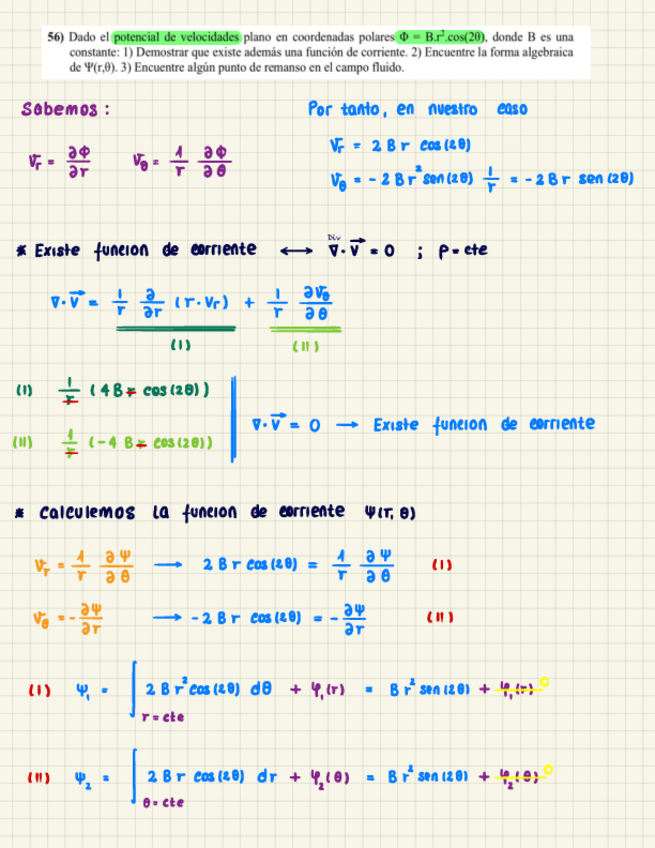 56) Dado el potencial de velocidades plano en coordenadas polares Φ = B.r².cos(2θ), donde B es una
constante: 1) Demostrar que existe además una función de corriente. 2) Encuentre la forma algebraica
de Ψ(r,θ). 3) Encuentre algún punto de remanso en el campo fluido.
Sabemos :
Vr = ∂Φ/∂r    Vθ = 1/r ∂Φ/∂θ
Por tanto, en nuestro caso
Vr = 2 B r cos (2θ)
Vθ = - 2 B r² sen (2θ) 1/r = - 2 B r sen (2θ)
* Existe funcion de corriente ⟷ Div ∇·V⃗ = 0 ; ρ = cte
∇·V⃗ = 1/r ∂/∂r (r·Vr) + 1/r ∂Vθ/∂θ
(I)    (II)
(I) 1/r (4 B r cos (2θ))
(II) 1/r (-4 B r cos (2θ))
∇·V⃗ = 0 → Existe funcion de corriente
* Calculemos la funcion de corriente Ψ(r, θ)
Vr = 1/r ∂Ψ/∂θ → 2 B r cos (2θ) = 1/r ∂Ψ/∂θ (I)
Vθ = - ∂Ψ/∂r → - 2 B r cos (2θ) = - ∂Ψ/∂r (II)
(I) Ψ₁ = ∫ 2 B r² cos (2θ) dθ + φ₁(r) = B r² sen (2θ) + φ₁(r) 0
r = cte
(II) Ψ₂ = ∫ 2 B r cos (2θ) dr + φ₂(θ) = B r² sen (2θ) + φ₂(θ) 0
θ = cte